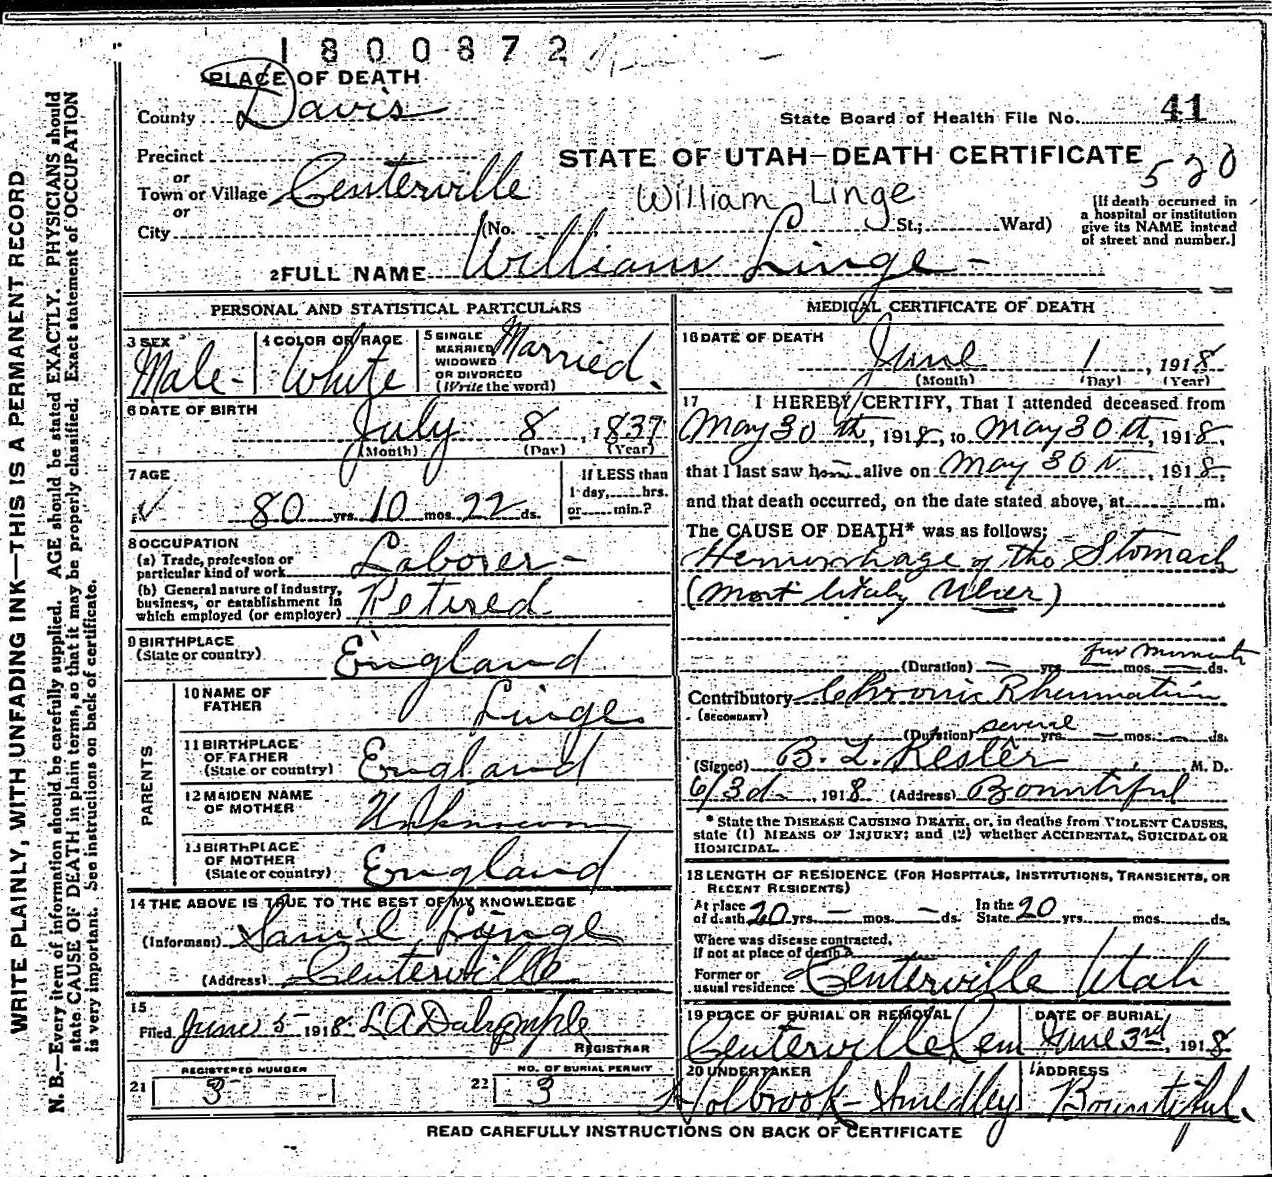 1800872
PLACE OF DEATH
County Davis
State Board of Health File No. 41
Precinct
or
STATE OF UTAH—DEATH CERTIFICATE
520
Town or Village Centerville
William Linge
or
City (No. St.; Ward)
[If death occurred in
a hospital or institution
give its NAME instead
of street and number.]
2 FULL NAME William Linge -
PERSONAL AND STATISTICAL PARTICULARS
3 SEX Male -
4 COLOR OR RACE White
5 SINGLE
MARRIED
WIDOWED
OR DIVORCED
(Write the word) Married.
6 DATE OF BIRTH
July 8, 1837
(Month) (Day) (Year)
7 AGE
80 yrs. 10 mos. 22 ds.
If LESS than
1 day, hrs.
or min.?
8 OCCUPATION
(a) Trade, profession or
particular kind of work Laborer -
(b) General nature of industry,
business, or establishment in
which employed (or employer) Retired
9 BIRTHPLACE
(State or country) England
PARENTS
10 NAME OF
FATHER Linge
11 BIRTHPLACE
OF FATHER
(State or country) England
12 MAIDEN NAME
OF MOTHER Unknown
13 BIRTHPLACE
OF MOTHER
(State or country) England
14 THE ABOVE IS TRUE TO THE BEST OF MY KNOWLEDGE
(Informant) Sam'l Linge
(Address) Centerville
15
Filed June 5 1918 L A Dalrymple
REGISTRAR
REGISTERED NUMBER
21 3
NO. OF BURIAL PERMIT
22 3
MEDICAL CERTIFICATE OF DEATH
16 DATE OF DEATH
June 1, 1918
(Month) (Day) (Year)
17 I HEREBY CERTIFY, That I attended deceased from
May 30 th, 1918, to May 30 th, 1918,
that I last saw him alive on May 30, 1918,
and that death occurred, on the date stated above, at m.
The CAUSE OF DEATH* was as follows:
Hemorrhage of the Stomach
(most likely Ulcer)
few moments
(Duration) — yrs. mos. — ds.
Contributory Chronic Rheumatism
(SECONDARY)
(Duration) several yrs. — mos. — ds.
(Signed) B. L. Kesler, M. D.
6/3d, 1918 (Address) Bountiful
* State the DISEASE CAUSING DEATH, or, in deaths from VIOLENT CAUSES,
state (1) MEANS OF INJURY; and (2) whether ACCIDENTAL, SUICIDAL OR
HOMICIDAL.
18 LENGTH OF RESIDENCE (FOR HOSPITALS, INSTITUTIONS, TRANSIENTS, OR
RECENT RESIDENTS)
At place
of death 20 yrs. — mos. — ds.
In the
State 20 yrs. mos. ds.
Where was disease contracted,
If not at place of death?
Former or
usual residence Centerville Utah
19 PLACE OF BURIAL OR REMOVAL
Centerville Cem
DATE OF BURIAL
June 3rd, 1918
20 UNDERTAKER
Holbrook - Smedley
ADDRESS
Bountiful.
READ CAREFULLY INSTRUCTIONS ON BACK OF CERTIFICATE
WRITE PLAINLY, WITH UNFADING INK—THIS IS A PERMANENT RECORD
N. B.—Every item of information should be carefully supplied. AGE should be stated EXACTLY. PHYSICIANS should
state CAUSE OF DEATH in plain terms, so that it may be properly classified. Exact statement of OCCUPATION
is very important. See instructions on back of certificate.